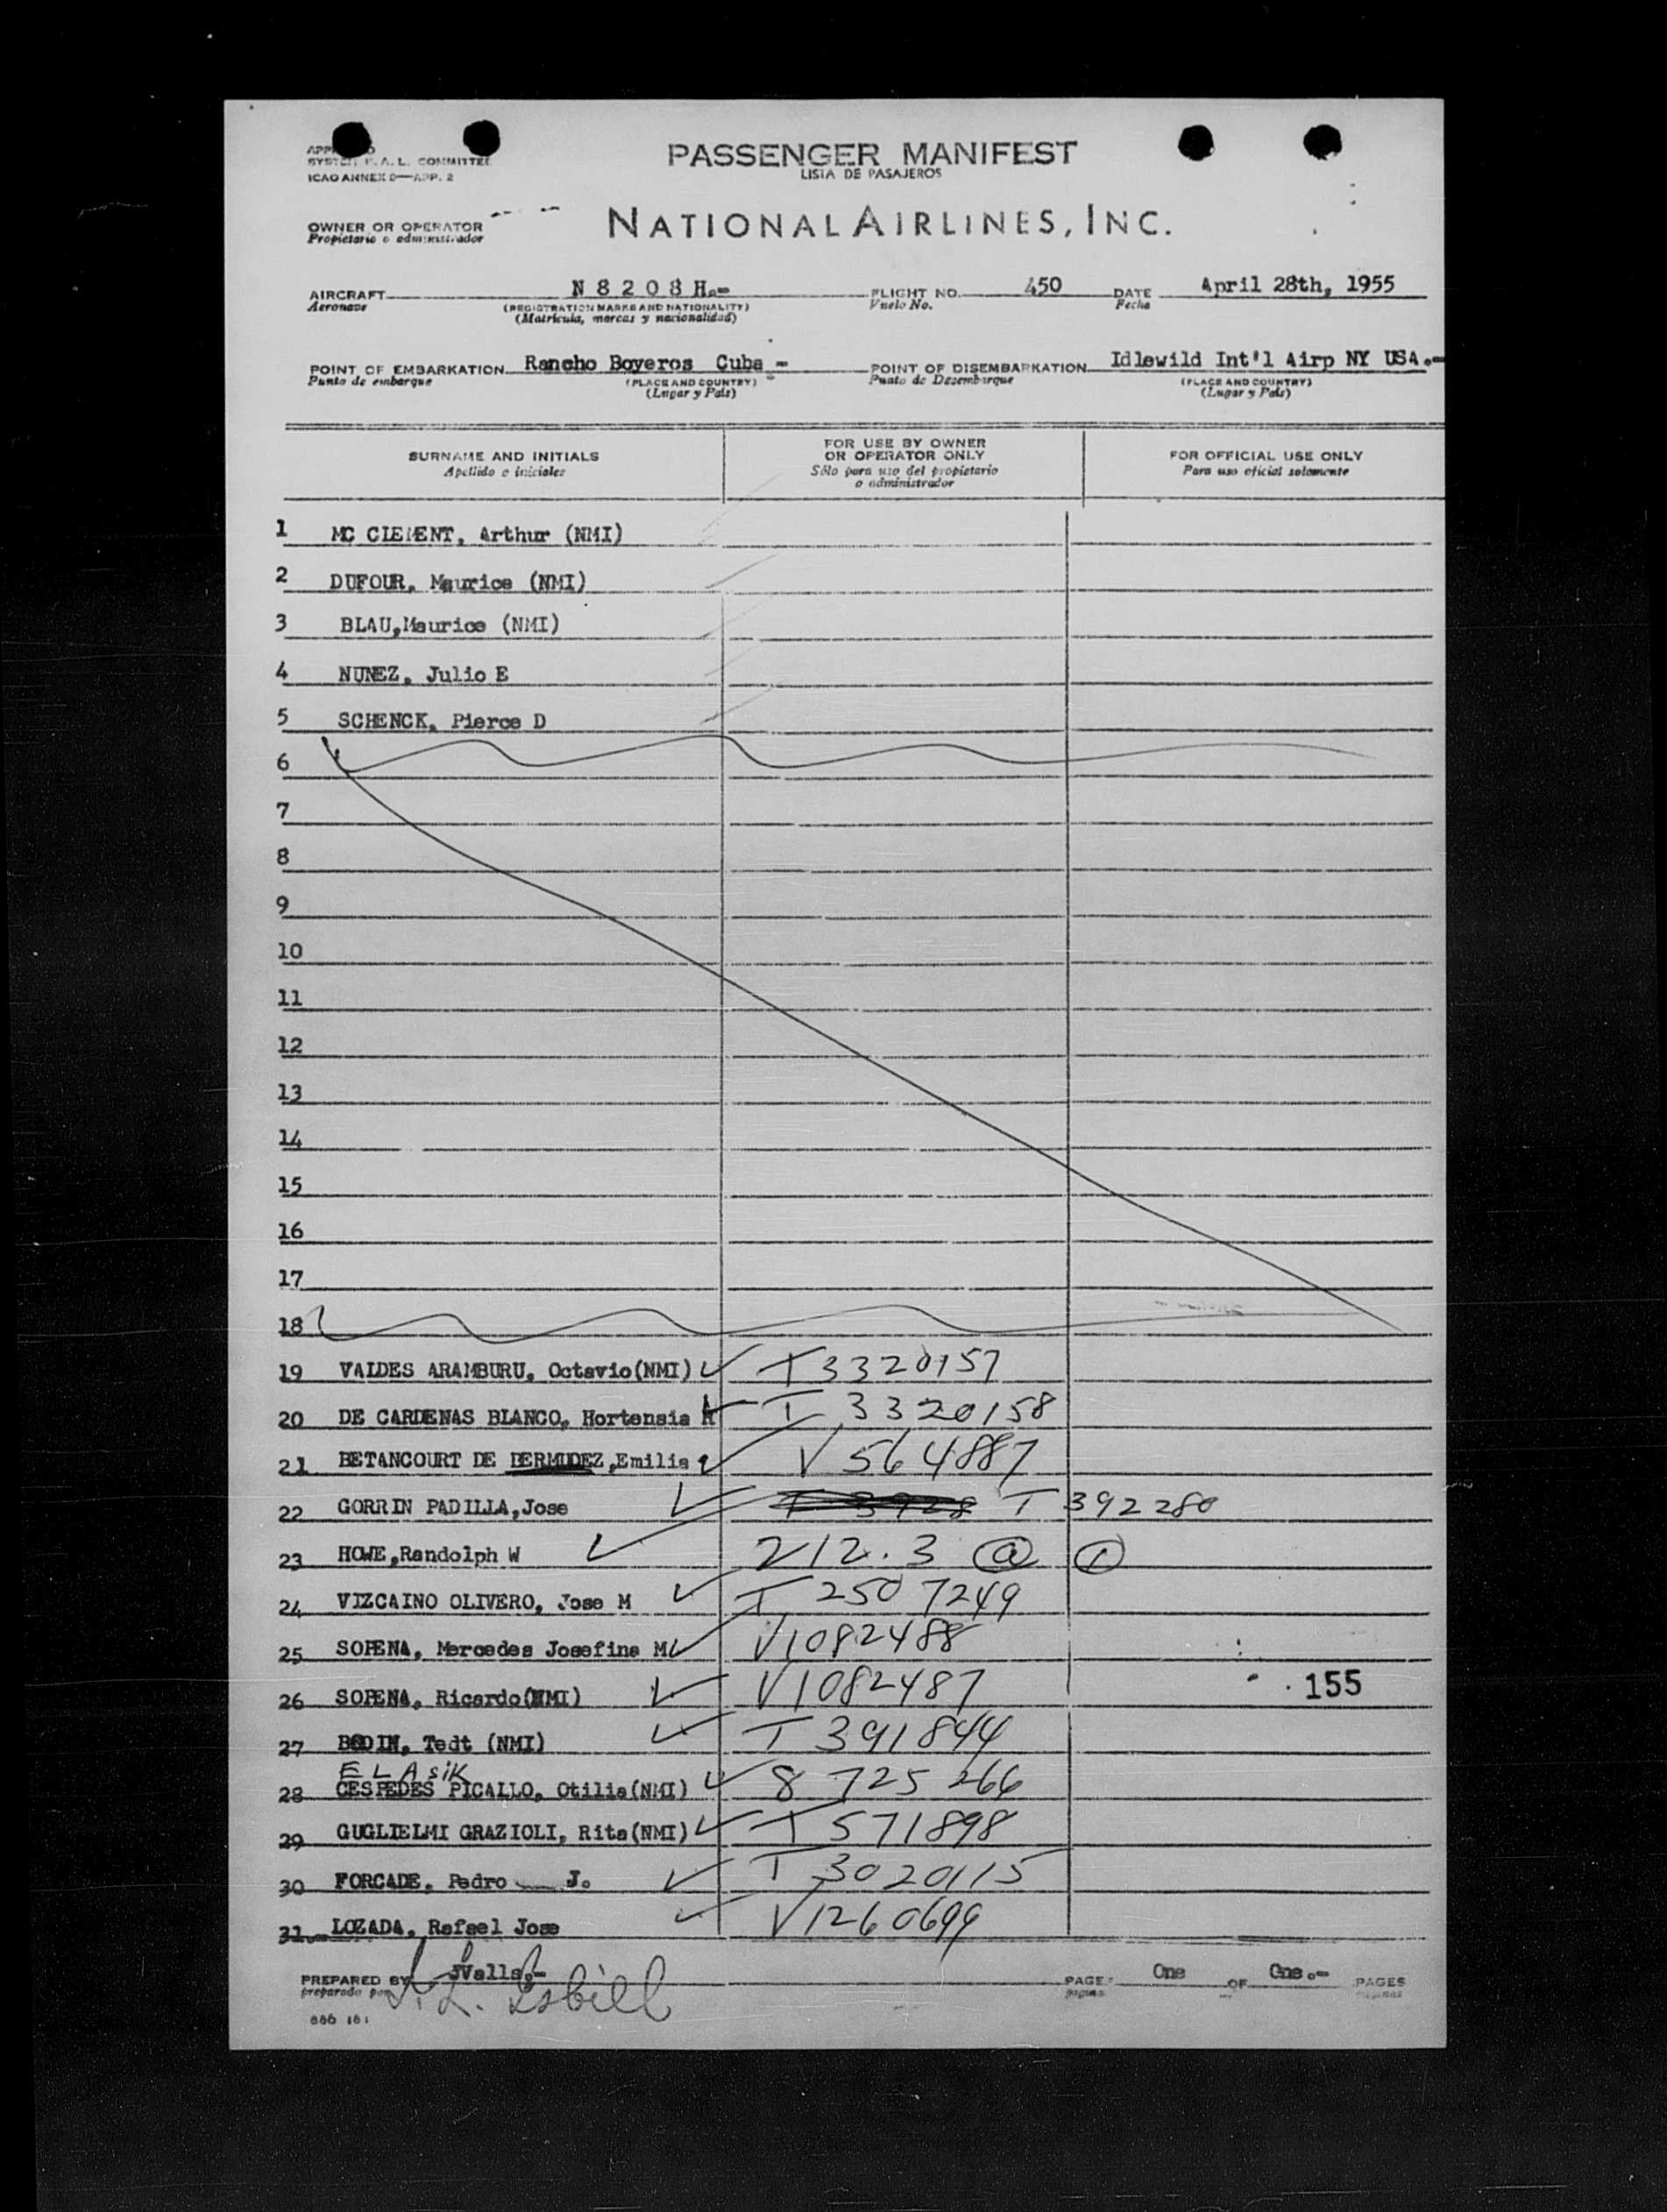 SYSTEM F. A. L. COMMITTEE
ICAO ANNEX 9—APP. 2
PASSENGER MANIFEST
LISTA DE PASAJEROS
OWNER OR OPERATOR
Propietario o administrador
NATIONAL AIRLINES, INC.
AIRCRAFT N 8 2 0 8 H.- FLIGHT NO. 450 DATE April 28th, 1955
Aeronave (REGISTRATION MARKS AND NATIONALITY) Vuelo No. Fecha
(Matrícula, marcas y nacionalidad)
POINT OF EMBARKATION Rancho Boyeros Cuba - POINT OF DISEMBARKATION Idlewild Int'l Airp NY USA.-
Punto de embarque (PLACE AND COUNTRY) Punto de Desembarque (PLACE AND COUNTRY)
(Lugar y País) (Lugar y País)
SURNAME AND INITIALS FOR USE BY OWNER OR OPERATOR ONLY FOR OFFICIAL USE ONLY
Apellido o iniciales Sólo para uso del propietario o administrador Para uso oficial solamente
1 MC CLEMENT, Arthur (NMI)
2 DUFOUR, Maurice (NMI)
3 BLAU,Maurice (NMI)
4 NUNEZ, Julio E
5 SCHENCK, Pierce D
6
7
8
9
10
11
12
13
14
15
16
17
18
19 VALDES ARAMBURU, Octavio(NMI) ✓ T 3320157
20 DE CARDENAS BLANCO, Hortensia ✓ T 3320158
21 BETANCOURT DE BERMUDEZ,Emilia ✓ V 564887
22 GORRIN PADILLA,Jose ✓ T 3928 T 392280
23 HOWE,Randolph W ✓ 212.3 (a) (1)
24 VIZCAINO OLIVERO, Jose M ✓ T 2507249
25 SOPENA, Mercedes Josefina M ✓ V1082488
26 SOPENA, Ricardo(NMI) ✓ V1082487
155
27 BODIN, Tedt (NMI) ✓ T 391844
ELASIK
28 CESPEDES PICALLO, Otilia(NMI) ✓ 8 725 266
29 GUGLIELMI GRAZIOLI, Rita(NMI) ✓ T 571898
30 FORCADE, Pedro J. ✓ T 3020115
31.- LOZADA, Rafael Jose ✓ V1260699
PREPARED BY JValls.- PAGE One OF One.- PAGES
preparado por